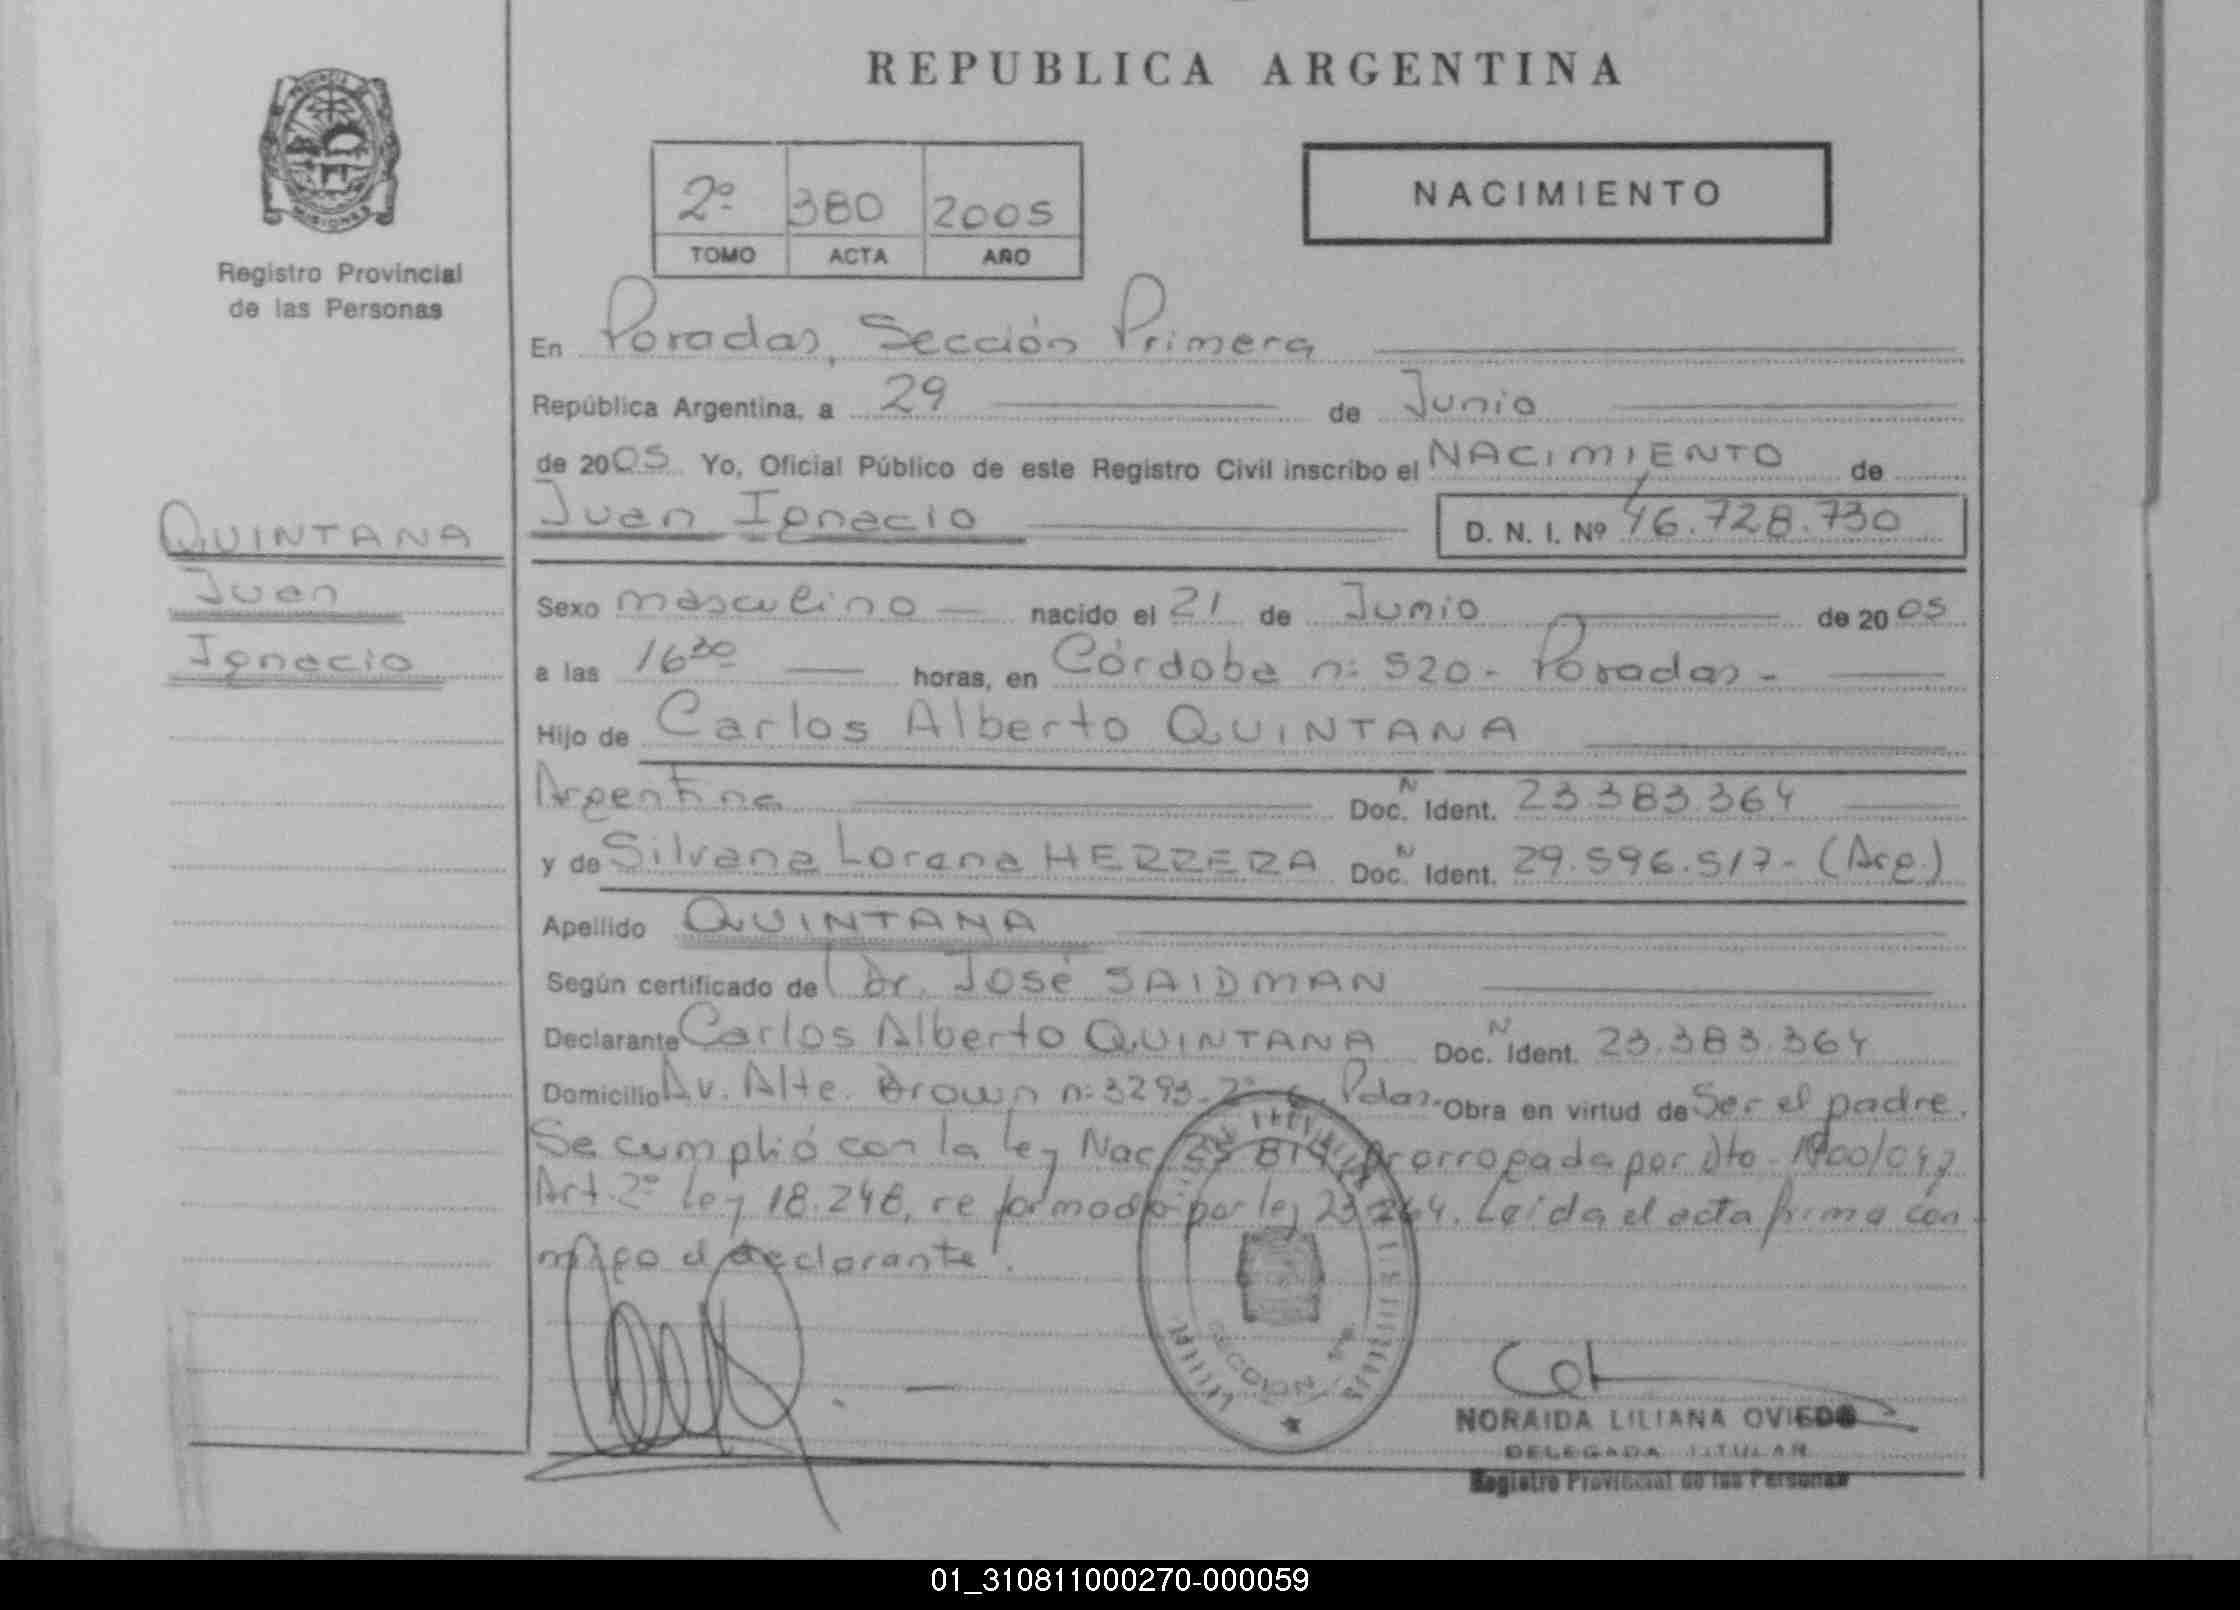 REPUBLICA ARGENTINA
PROVINCIA DE
MISIONES
Registro Provincial
de las Personas
2º 380 2005
TOMO ACTA AÑO
NACIMIENTO
En Posadas, Sección Primera
República Argentina, a 29 de Junio
de 2005 Yo, Oficial Público de este Registro Civil inscribo el NACIMIENTO de
Juan Ignacio D. N. I. Nº 46.728.730
QUINTANA
Juan
Ignacio
Sexo masculino nacido el 21 de Junio de 2005
a las 16 30 horas, en Córdoba nº 520 - Posadas -
Hijo de Carlos Alberto QUINTANA
Argentina Doc. N Ident. 23.383.364
y de Silvana Lorena HERRERA Doc. N Ident. 29.596.517 - (Arg.)
Apellido QUINTANA
Según certificado de Dr. José SAIDMAN
Declarante Carlos Alberto QUINTANA Doc. N Ident. 23.383.364
Domicilio Av. Alte. Brown nº 3293 - Pdas. Obra en virtud de Ser el padre.
Se cumplió con la ley Nac. 25.819, Prorrogada por Dto. 1900/04 y
Art. 2º Ley 18.248, reformado por ley 23.264. Leída el acta firma con
migo el declarante.
SECCION 1
NORAIDA LILIANA OVIEDO
DELEGADA TITULAR
Registro Provincial de las Personas
01_310811000270-000059